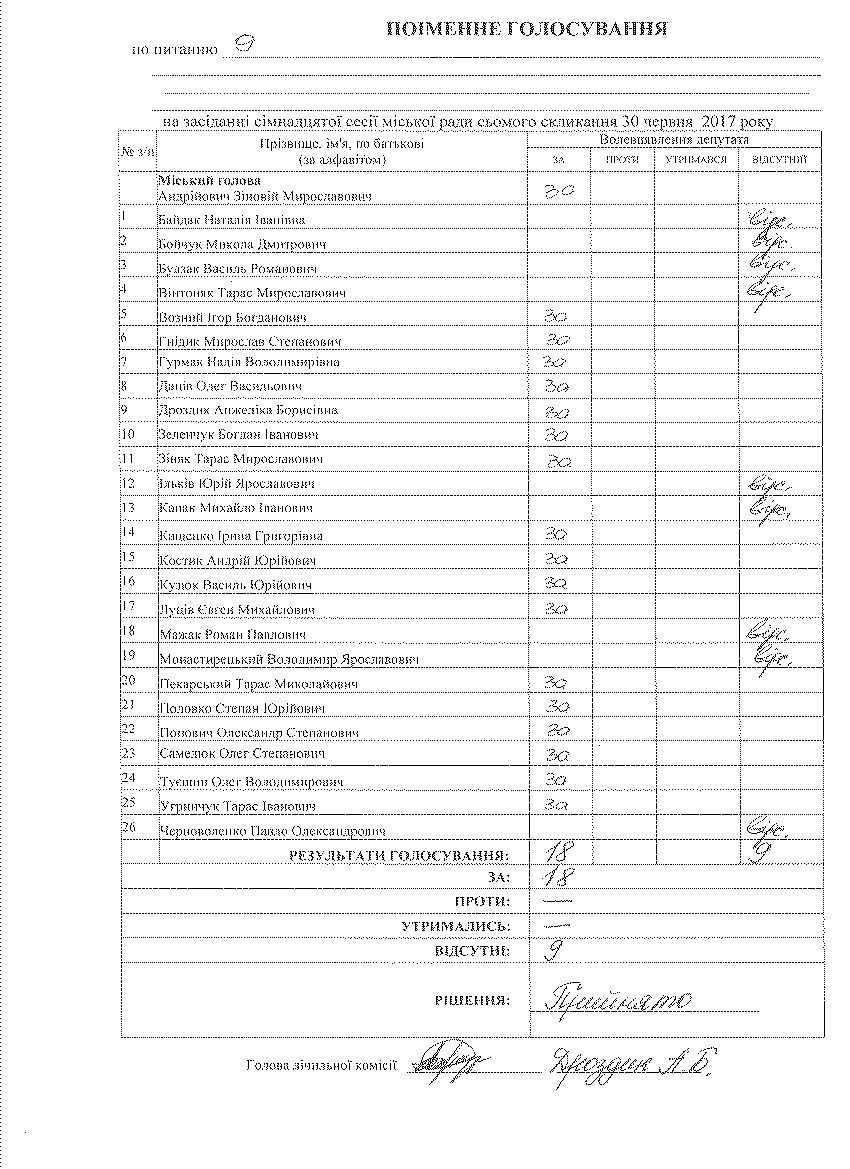 ПОІМЕННЕ ГОЛОСУВАННЯ
по питанню 9
на засіданні сімнадцятої сесії міської ради сьомого скликання 30 червня 2017 року
№ з/п Прізвище, ім'я, по батькові (за алфавітом) Волевиявлення депутата
ЗА ПРОТИ УТРИМАВСЯ ВІДСУТНІЙ
Міський голова
Андрійович Зіновій Мирославович За
1 Байдак Наталія Іванівна відс.
2 Бойчук Микола Дмитрович відс.
3 Будзак Василь Романович відс.
4 Вінтоняк Тарас Мирославович відс.
5 Возний Ігор Богданович За
6 Гнідик Мирослав Степанович За
7 Гурмак Надія Володимирівна За
8 Даців Олег Васильович За
9 Дроздик Анжеліка Борисівна За
10 Зеленчук Богдан Іванович За
11 Зіняк Тарас Мирославович За
12 Ільків Юрій Ярославович відс.
13 Капак Михайло Іванович відс.
14 Кащенко Ірина Григорівна За
15 Костик Андрій Юрійович За
16 Куцок Василь Юрійович За
17 Луців Євген Михайлович За
18 Мажак Роман Павлович відс.
19 Монастирецький Володимир Ярославович відс.
20 Пекарський Тарас Миколайович За
21 Половко Степан Юрійович За
22 Попович Олександр Степанович За
23 Самелюк Олег Степанович За
24 Олег Володимирович За
25 Угринчук Тарас Іванович За
26 Черноволенко Павло Олександрович відс.
РЕЗУЛЬТАТИ ГОЛОСУВАННЯ: 18 9
ЗА: 18
ПРОТИ: —
УТРИМАЛИСЬ: —
ВІДСУТНІ: 9
РІШЕННЯ: Прийнято
Голова лічильної комісії Дроздик А.Б.